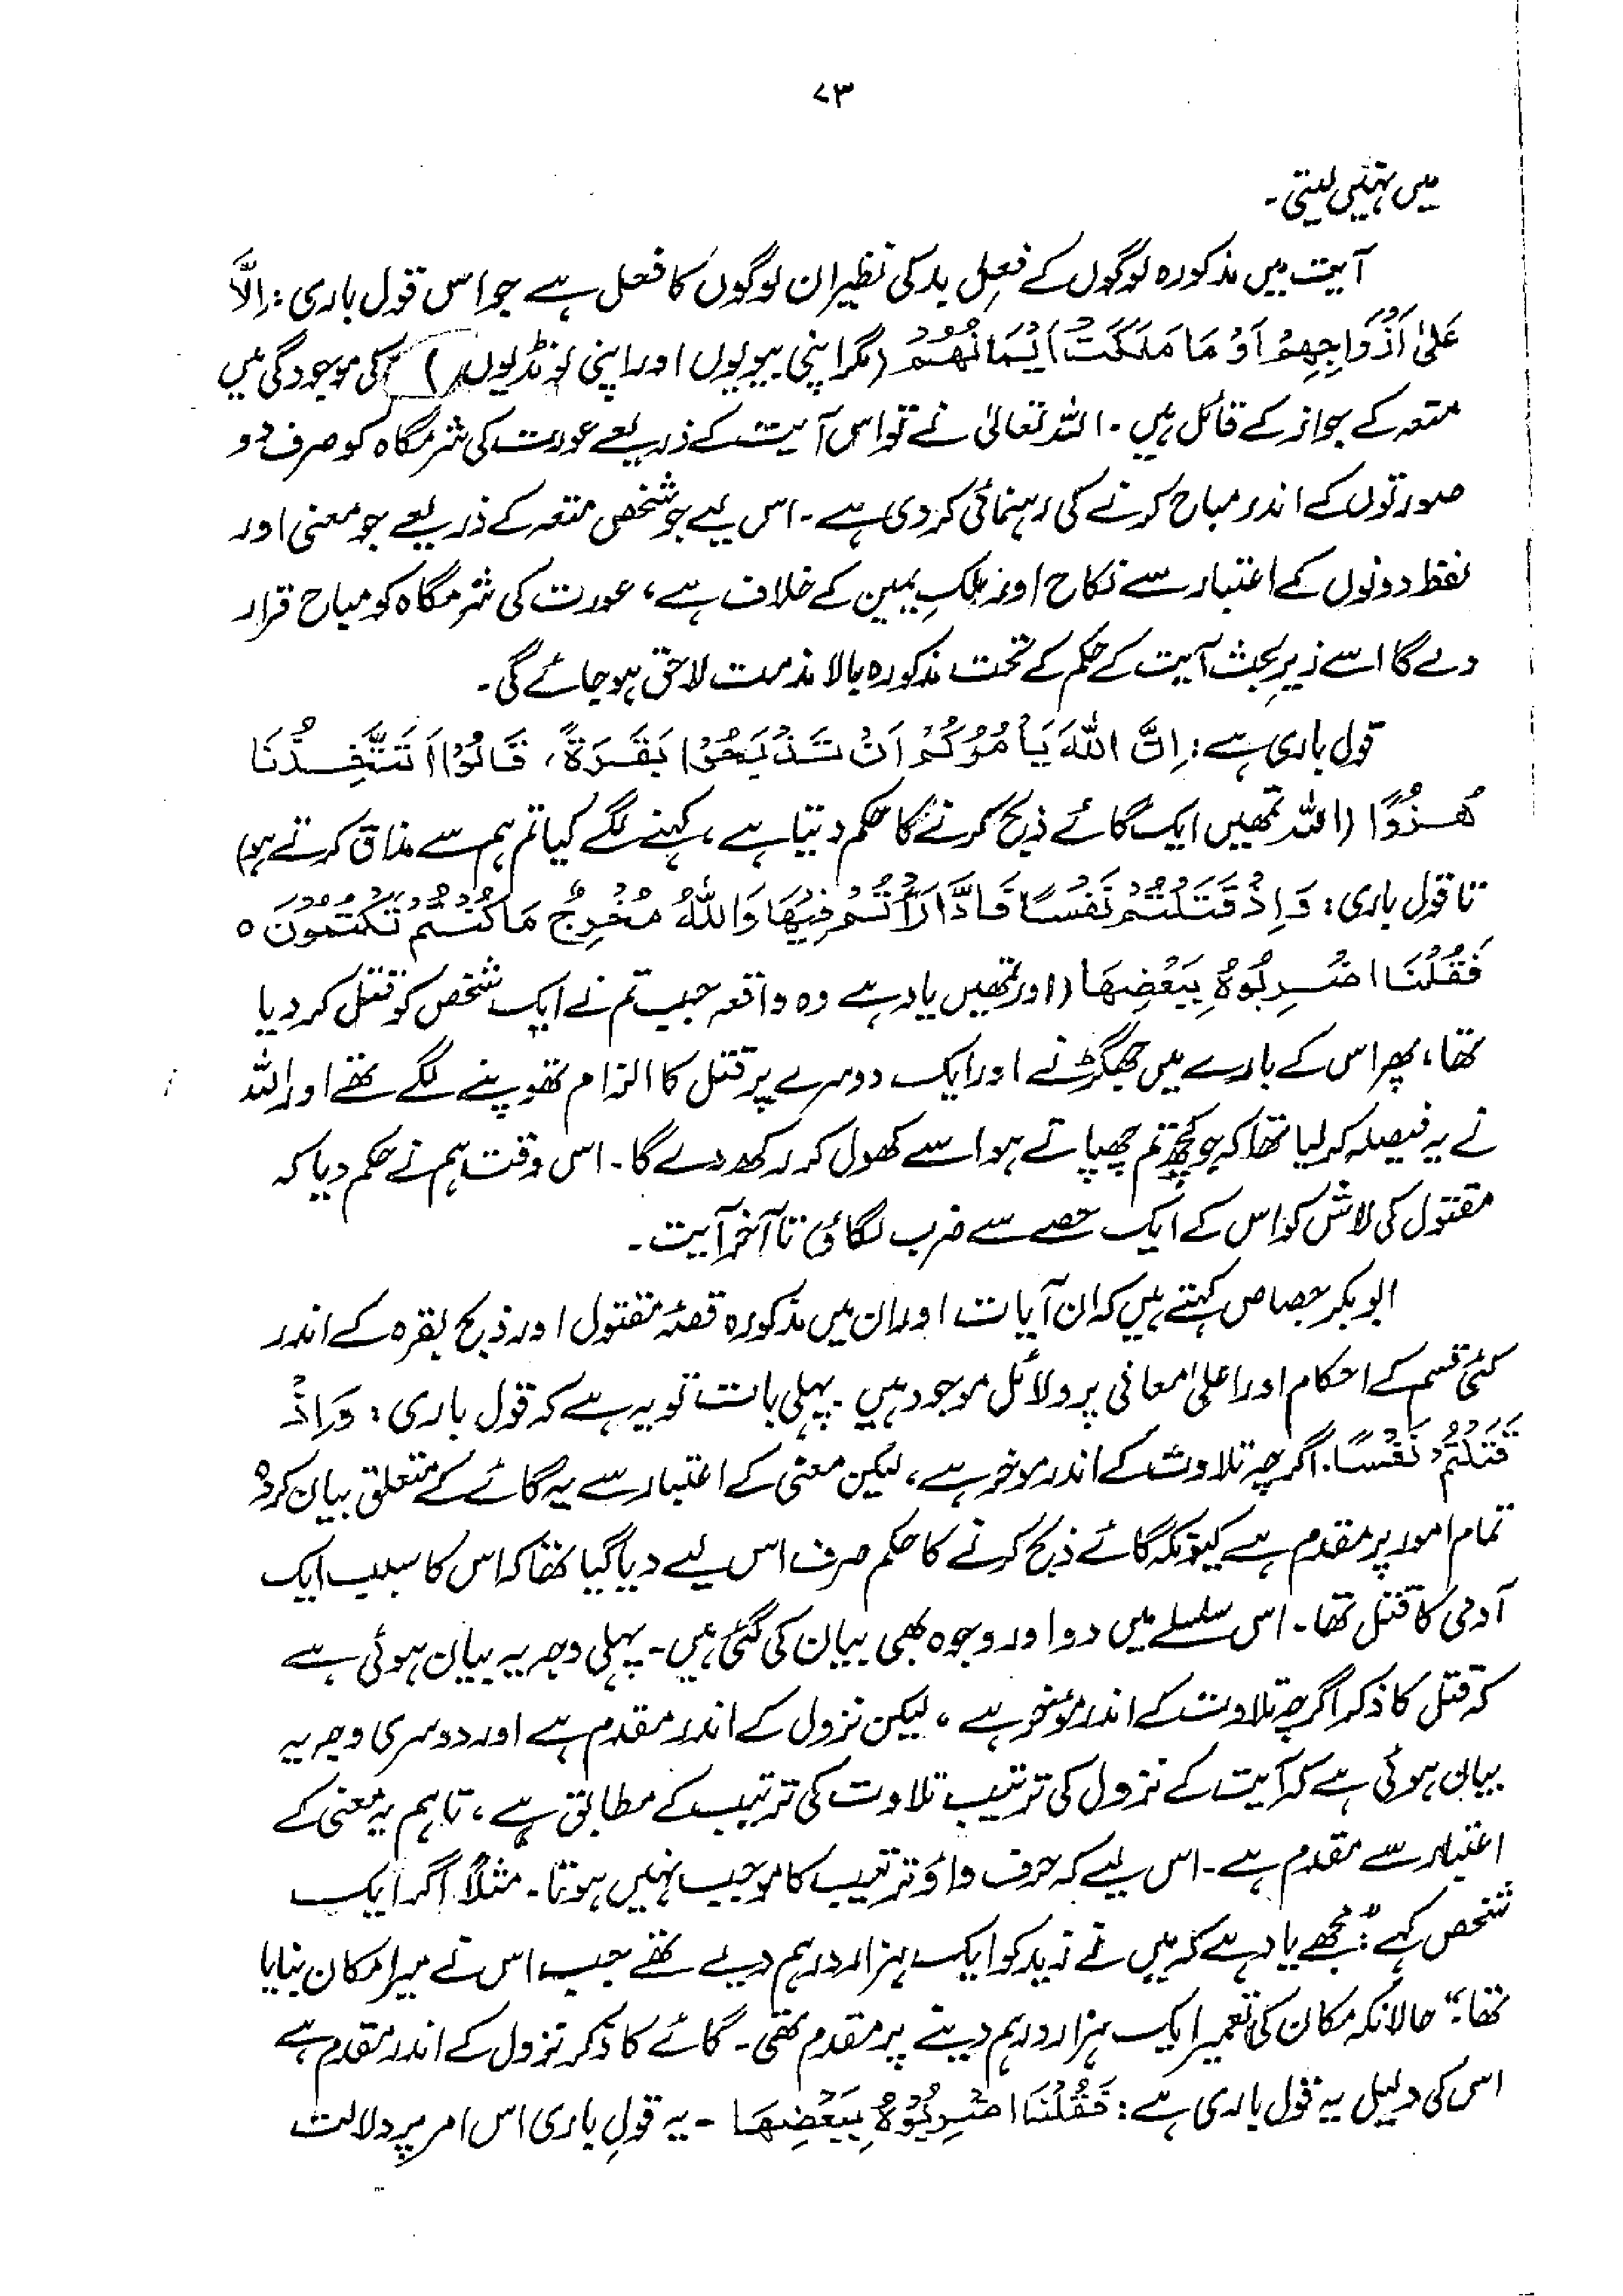 ۷۳
میں نہیں لیتی۔
آیت میں مذکورہ لوگوں کے فعلِ بد کی نظیر ان لوگوں کا فعل ہے جو اس قول باری: اِلَّا
عَلیٰ اَزْوَاجِهِمْ اَوْ مَا مَلَکَتْ اَیْمَانُهُمْ (مگر اپنی بیویوں اور اپنی لونڈیوں) کی موجودگی میں
متعہ کے جواز کے قائل ہیں۔ اللہ تعالیٰ نے تو اس آیت کے ذریعے عورت کی شرمگاہ کو صرف دو
صورتوں کے اندر مباح کرنے کی رہنمائی کر دی ہے۔ اس لیے جو شخص متعہ کے ذریعے جو معنی اور
لفظ دونوں کے اعتبار سے نکاح اور ملکِ یمین کے خلاف ہے، عورت کی شرمگاہ کو مباح قرار
دے گا اسے زیرِ بحث آیت کے حکم کے تحت مذکورہ بالا مذمت لاحق ہو جائے گی۔
قول باری ہے: اِنَّ اللّٰهَ یَاْمُرُکُمْ اَنْ تَذْبَحُوْا بَقَرَةً، قَالُوْا اَتَتَّخِذُنَا
هُزُوًا (اللہ تمھیں ایک گائے ذبح کرنے کا حکم دیتا ہے، کہنے لگے کیا تم ہم سے مذاق کرتے ہو)
تا قول باری: وَاِذْ قَتَلْتُمْ نَفْسًا فَادَّارَأْتُمْ فِیْهَا وَاللّٰهُ مُخْرِجٌ مَا کُنْتُمْ تَکْتُمُوْنَ ہ
فَقُلْنَا اضْرِبُوْهُ بِبَعْضِهَا (اور تمھیں یاد ہے وہ واقعہ جب تم نے ایک شخص کو قتل کر دیا
تھا، پھر اس کے بارے میں جھگڑنے اور ایک دوسرے پر قتل کا الزام تھوپنے لگے تھے اور اللہ
نے یہ فیصلہ کر لیا تھا کہ جو کچھ تم چھپاتے ہو اسے کھول کر رکھ دے گا۔ اس وقت ہم نے حکم دیا کہ
مقتول کی لاش کو اس کے ایک حصے سے ضرب لگاؤ) تا آخر آیت۔
ابوبکر جصاص کہتے ہیں کہ ان آیات اور ان میں مذکورہ قصۂ مقتول اور ذبح بقرہ کے اندر
کئی قسم کے احکام اور اعلیٰ معانی پر دلائل موجود ہیں۔ پہلی بات تو یہ ہے کہ قول باری: وَاِذْ
قَتَلْتُمْ نَفْسًا۔ اگرچہ تلاوت کے اندر موخر ہے، لیکن معنی کے اعتبار سے یہ گائے کے متعلق بیان کردہ
تمام امور پر مقدم ہے کیونکہ گائے ذبح کرنے کا حکم صرف اس لیے دیا گیا تھا کہ اس کا سبب ایک
آدمی کا قتل تھا۔ اس سلسلے میں دو اور وجوہ بھی بیان کی گئی ہیں۔ پہلی وجہ یہ بیان ہوئی ہے
کہ قتل کا ذکر اگرچہ تلاوت کے اندر مؤخر ہے، لیکن نزول کے اندر مقدم ہے اور دوسری وجہ یہ
بیان ہوئی ہے کہ آیت کے نزول کی ترتیب تلاوت کی ترتیب کے مطابق ہے، تاہم یہ معنی کے
اعتبار سے مقدم ہے۔ اس لیے کہ حرف واؤ ترتیب کا موجب نہیں ہوتا۔ مثلاً اگر ایک
شخص کہے: "مجھے یاد ہے کہ میں نے زید کو ایک ہزار درہم دیے تھے جب اس نے میرا مکان بنایا
تھا۔" حالانکہ مکان کی تعمیر ایک ہزار درہم دینے پر مقدم تھی۔ گائے کا ذکر نزول کے اندر مقدم ہے
اس کی دلیل یہ قول باری ہے: فَقُلْنَا اضْرِبُوْهُ بِبَعْضِهَا ۔ یہ قولِ باری اس امر پر دلالت